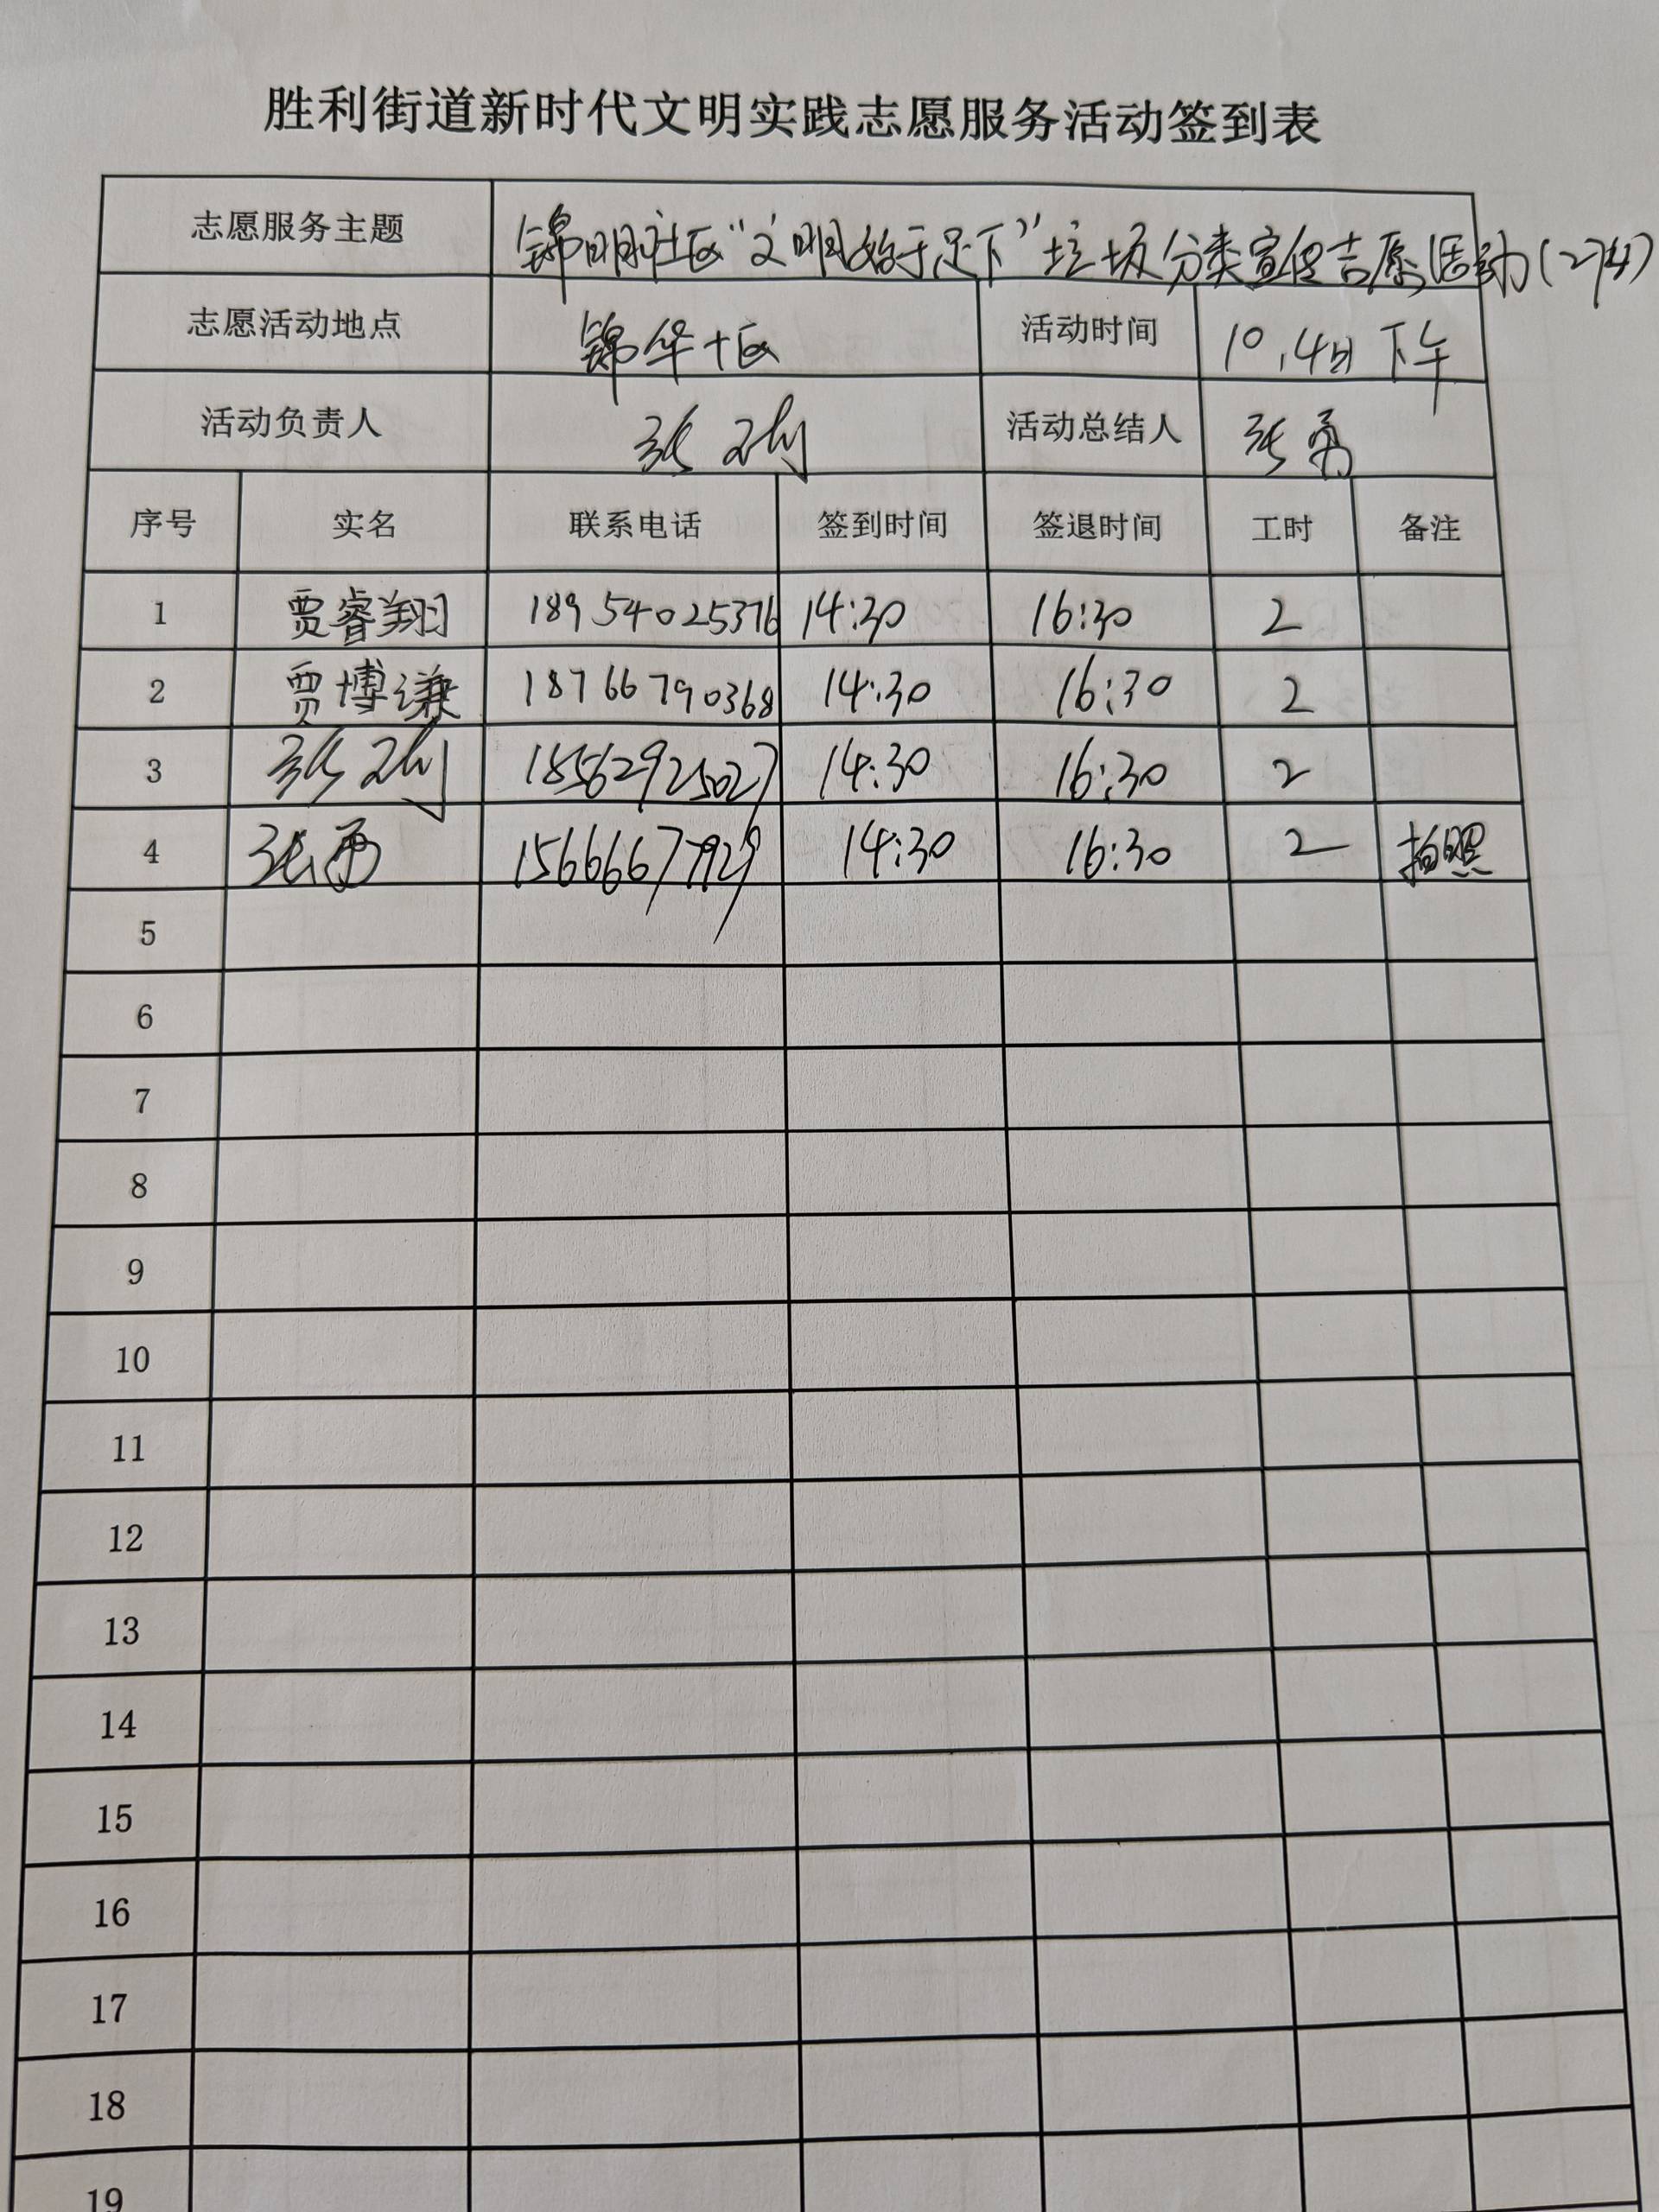 胜利街道新时代文明实践志愿服务活动签到表
志愿服务主题 锦明社区“文明始于足下”垃圾分类宣传志愿活动(274)
志愿活动地点 锦华十区 活动时间 10.4日 下午
活动负责人 张 活动总结人 张勇
序号 实名 联系电话 签到时间 签退时间 工时 备注
1 贾睿翔 18954025376 14:30 16:30 2
2 贾博谦 18766790368 14:30 16:30 2
3 张 18562925027 14:30 16:30 2
4 张 15666677929 14:30 16:30 2 拍照
5
6
7
8
9
10
11
12
13
14
15
16
17
18
19